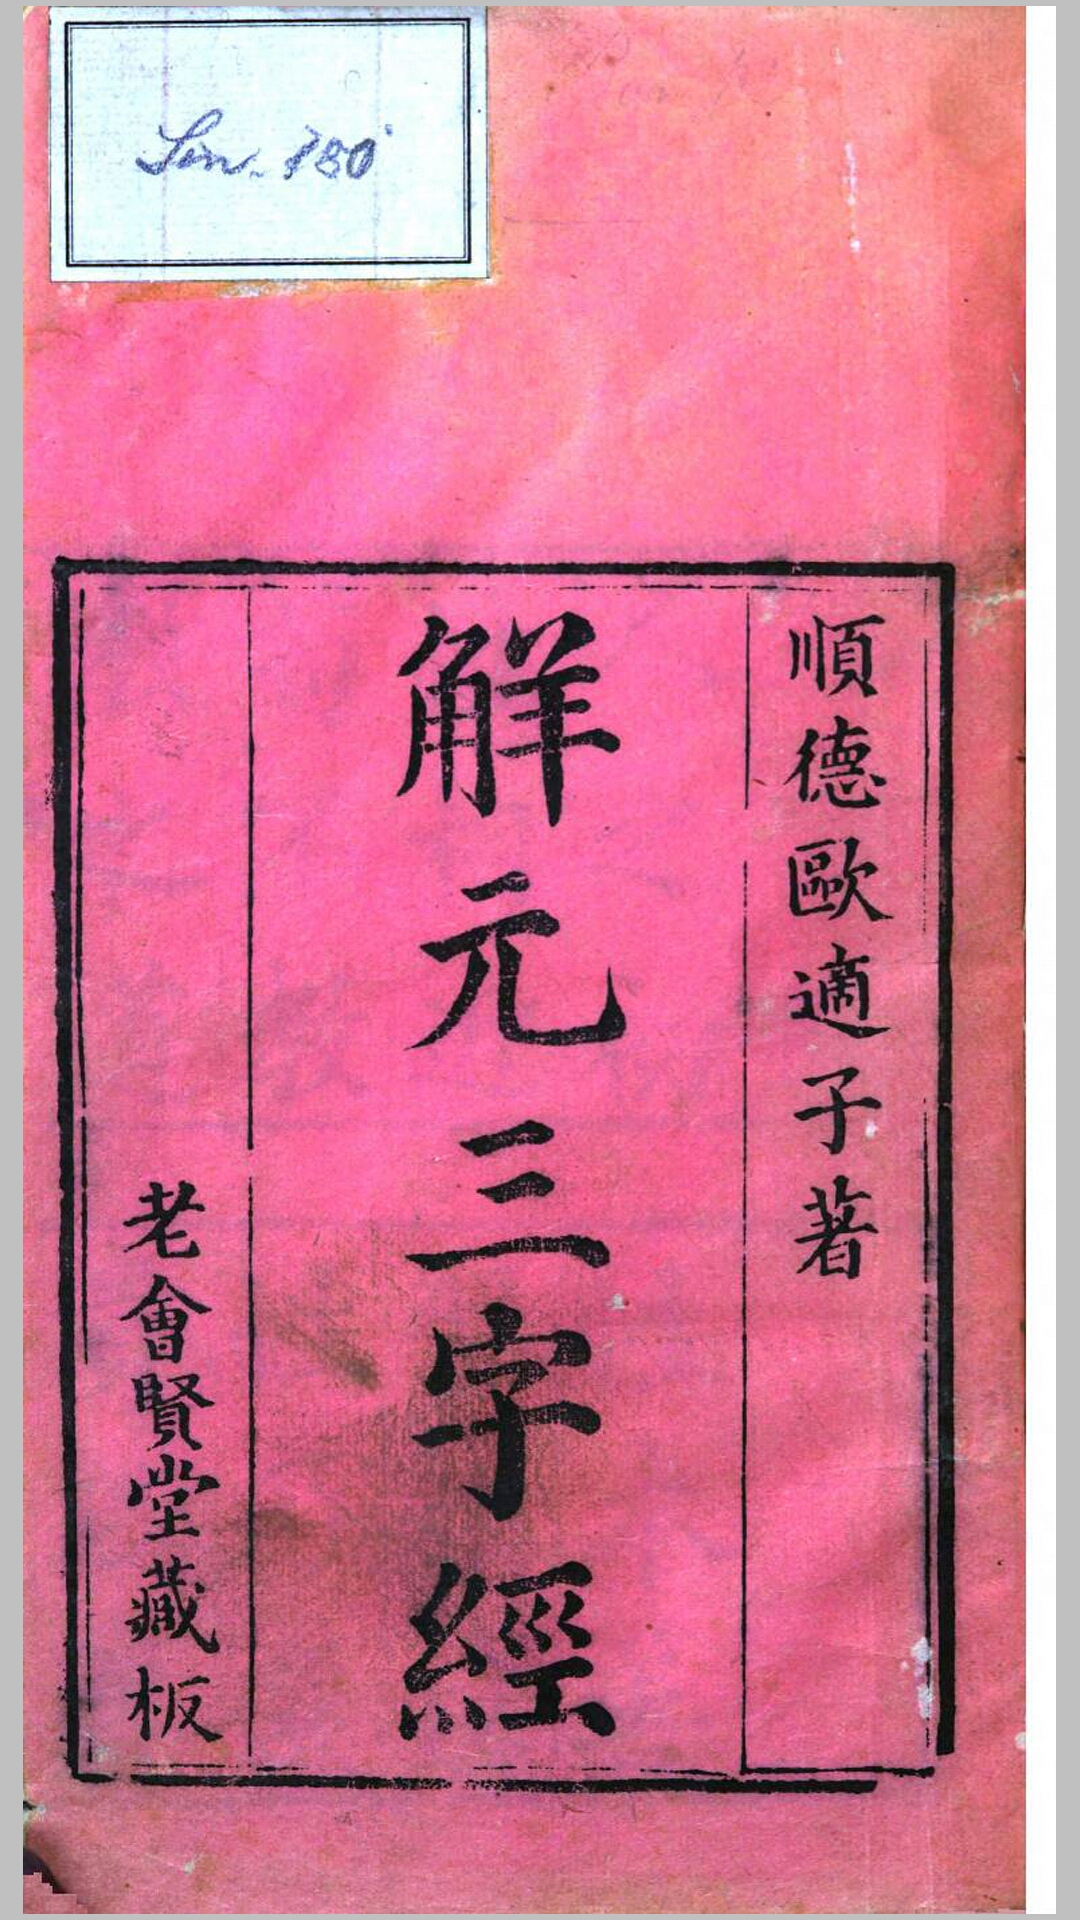 Sin. 180
順德歐適子著
觧元三字經
老會賢堂藏板